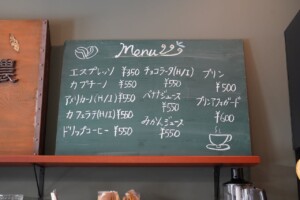 農
Menu
エスプレッソ ¥350
カプチーノ ¥550
アメリカーノ(H/I) ¥550
カフェラテ(H/I) ¥550
ドリップコーヒー ¥550
チョコラータ(H/I)
¥550
バナナジュース
¥550
みかんジュース
¥550
プリン
¥500
プリンアフォガード
¥600